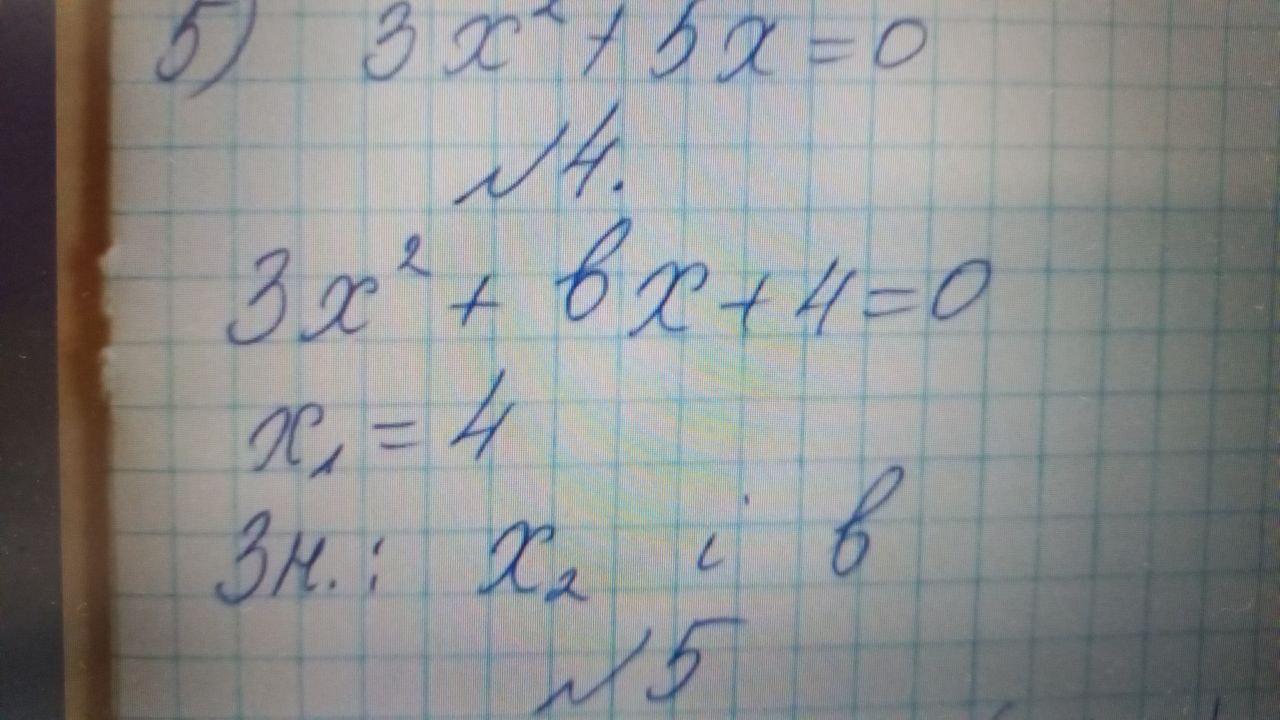 5) 3x² + 5x = 0
№4.
3x² + вx + 4 = 0
x₁ = 4
Зн.: x₂ і в
№5